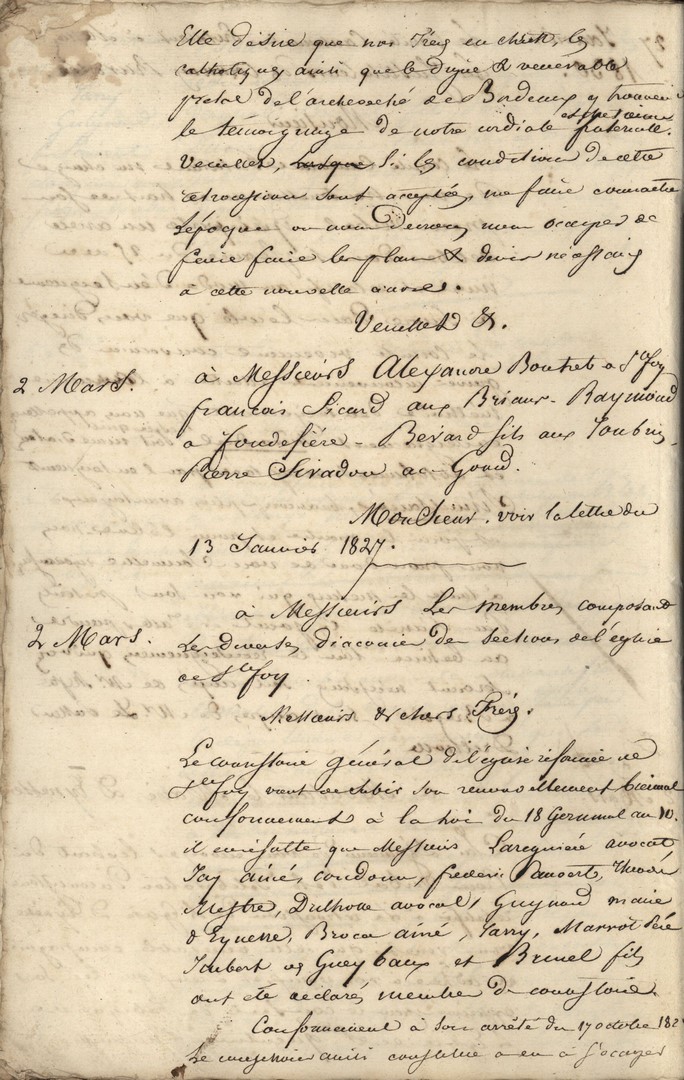 Elle désire que nos Frères en christ, les
catholiques ainsi que le digne & vénérable
prélat de l'archevéché de Bordeaux y trouvent
le témoignage de notre cordiale fraternelle.
Veuillez, Si les conditions de cette
retrocession sont acceptées, me faire connaitre
L'époque ou nous devrons nous occuper de
faire faire les plans & devis nécessaires
à cette nouvelle
Veuillez &.
2 Mars.
à Messieurs Alexandre Boutet a Ste foy
françois Sicard aux Briaux - Raymond
a fondefiére - Bérard fils aux
Pierre Siradou au Grand.
Monsieur. voir la lettre du
13 Janvier 1827.
2 Mars.
à Messieurs Les membres composant
Les diverses diaconies des sections de l'église
de Ste foy.
Messieurs & chers Frères.
Le consistoire général de l'église réformée de
Ste foy vient de subir son renouvellement biennal
conformément à la Loi du 18 Germinal an 10.
il en résulte que Messieurs Laregnière avocat
Jay ainé, coudonn, frédéric Théodore
Mestre, Dulhoste avocat, Guignard maire
d'Eynesse, Broca ainé, Jarry, Marrot Père
Joubert de Gueybaux et Brunel fils
ont été déclarés membres du consistoire.
Conformément à son arrêté du 17 octobre 182
Le consistoire ainsi constitué a eu à S'occuper